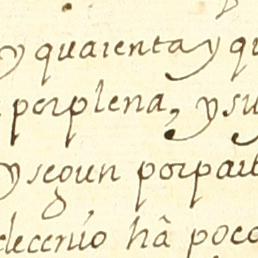 y quarenta y qu
perplena, y su
y segun porpart
decenio hâ poco